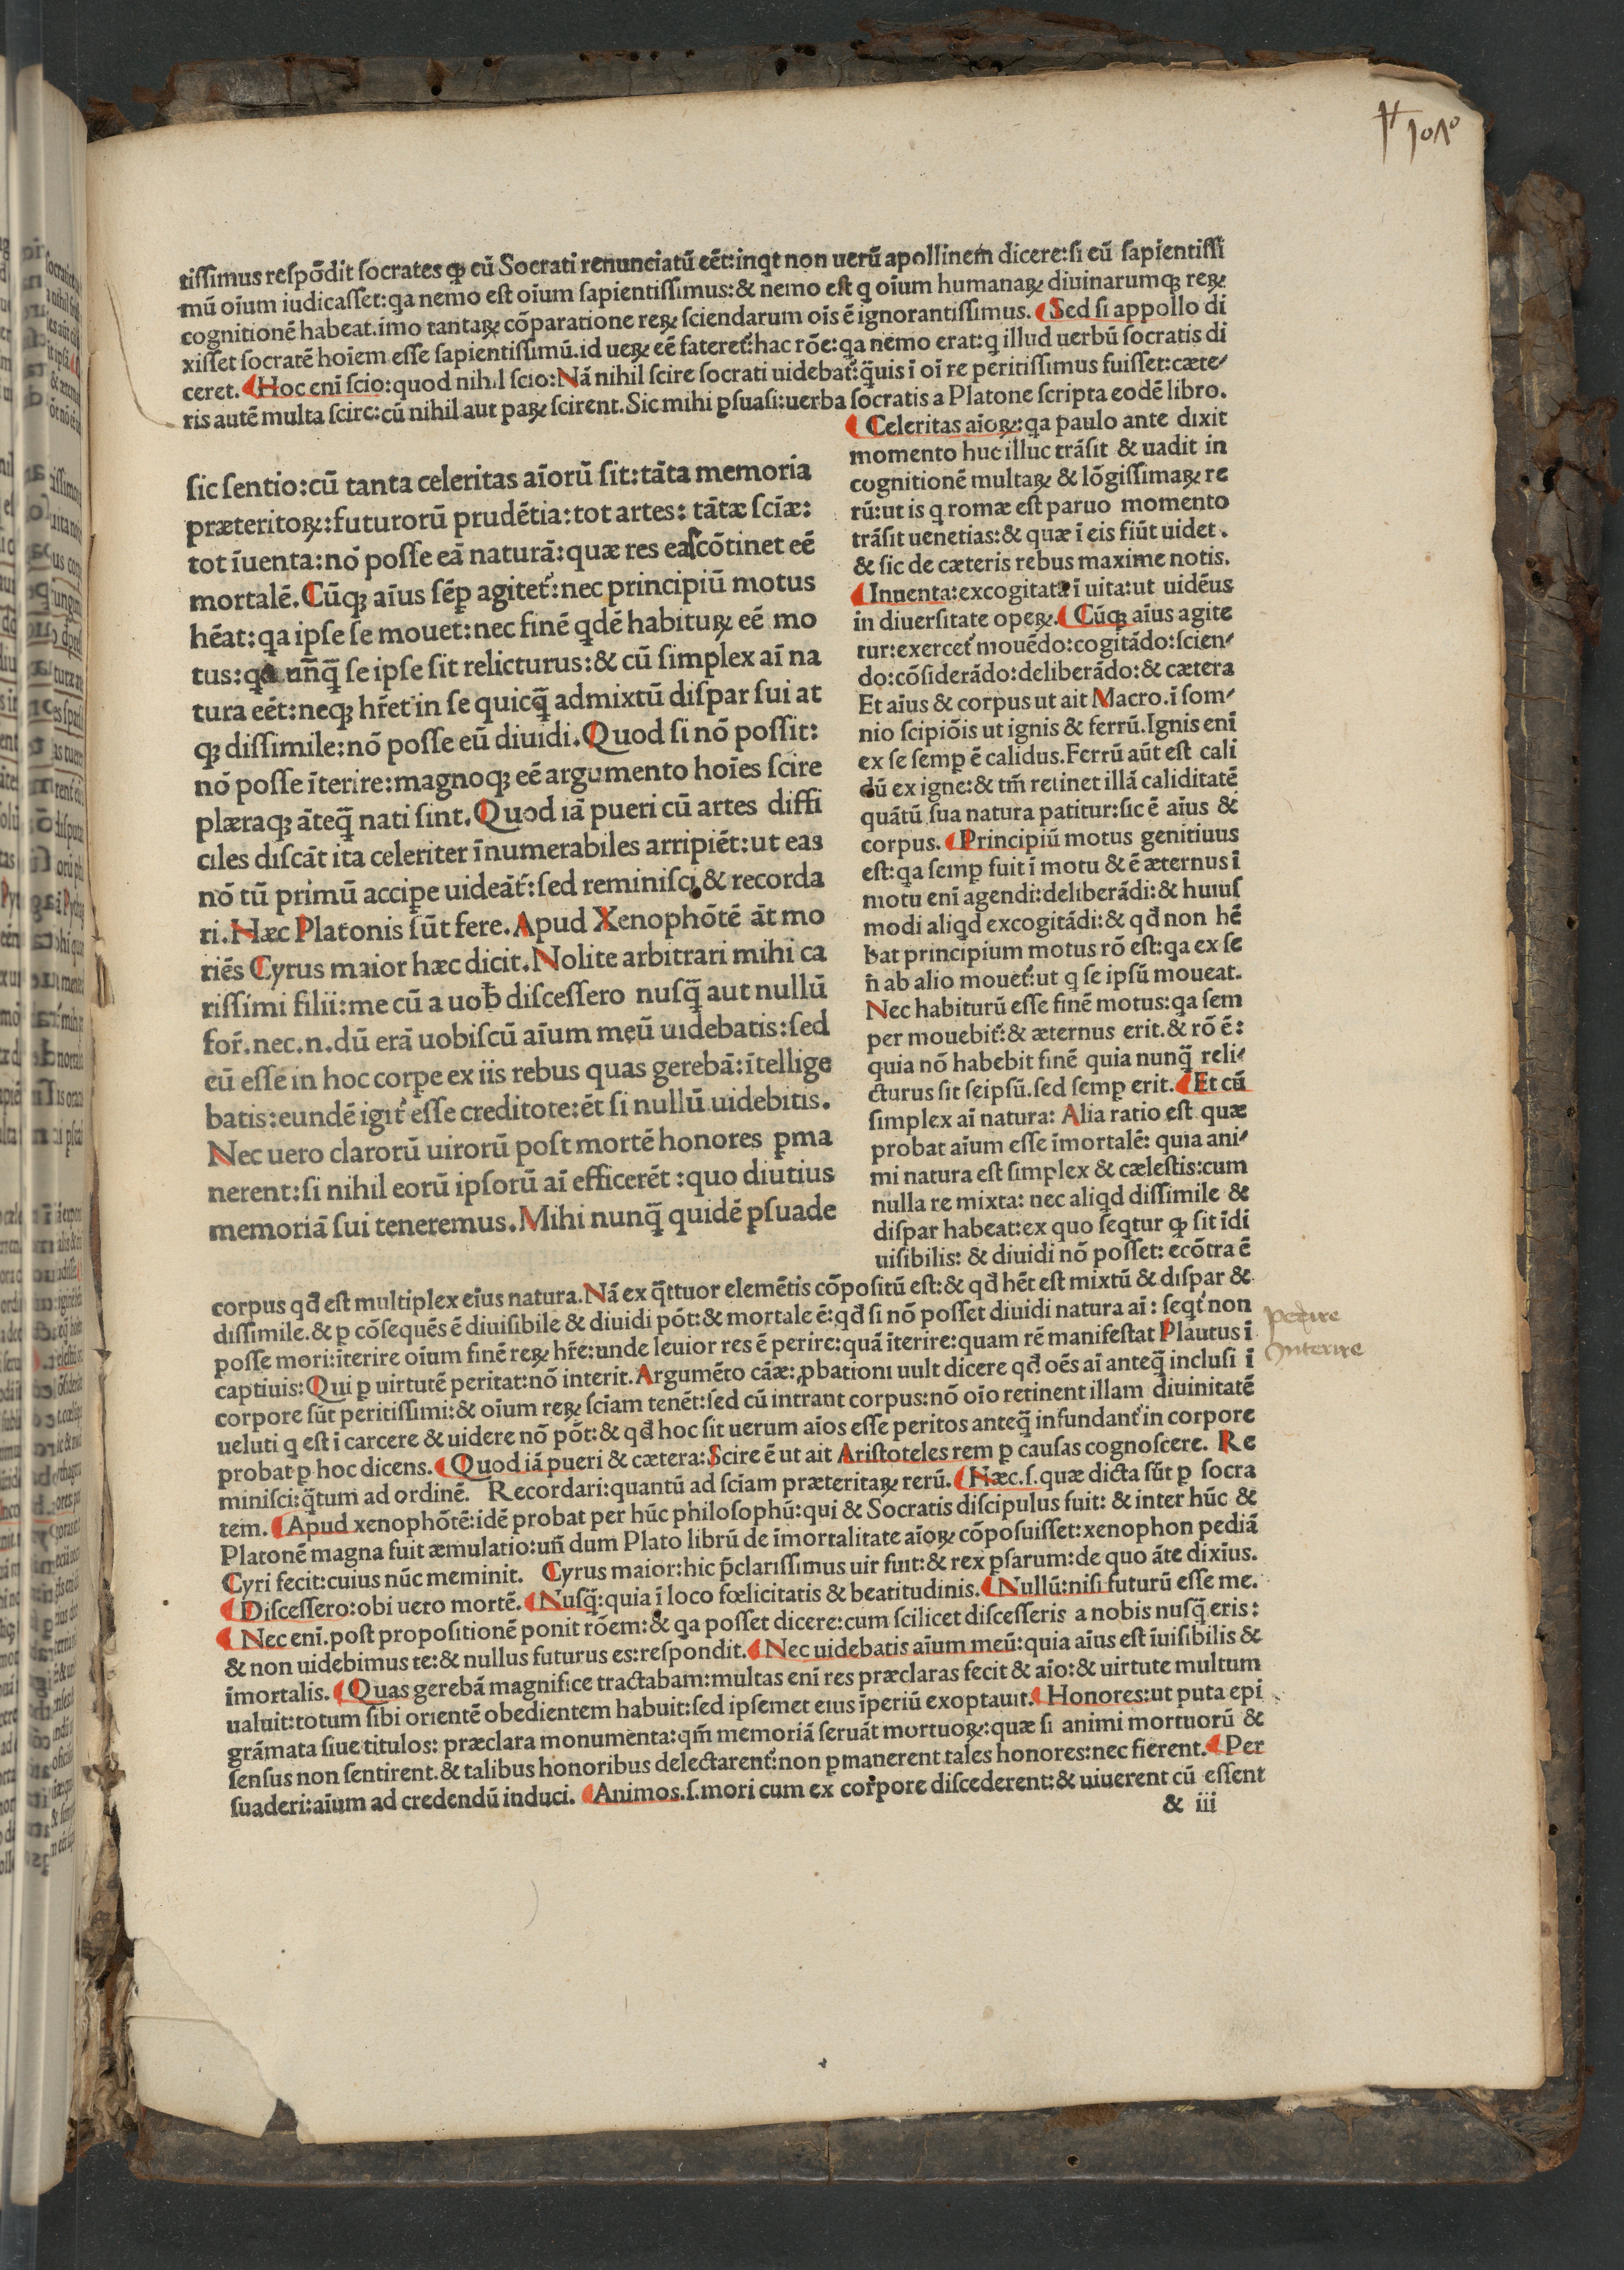 tissimus respōdit socrates ꝙ cū Socrati renunciatū eēt: inqt non uerū apollinem dicere: si eū sapientissi
mū oīum iudicasset: qa nemo est oīum sapientissimus: & nemo est q oīum humanaꝝ diuinarumqꝫ reꝝ
cognitionē habeat. imo tantaꝝ cōparatione reꝝ sciendarum oīs ē ignorantissimus. Sed si appollo di
xisset socratē hoīem esse sapientissimū. id ueꝝ eē fateret᷑: hac rōe: qa nemo erat: q illud uerbū socratis di
ceret. Hoc enī scio: quod nihil scio: Nā nihil scire socrati uidebat᷑: q̄uis ī oī re peritissimus fuisset: cæte⸗
ris autē multa scire: cū nihil aut paꝝ scirent. Sic mihi ꝑsuasi: uerba socratis a Platone scripta eodē libro.
sic sentio: cū tanta celeritas aīorū sit: tāta memoria
præteritoꝝ: futurorū prudētia: tot artes: tātæ scīæ:
tot īuenta: nō posse eā naturā: quæ res eas cōtinet eē
mortalē. Cūqꝫ aīus sēꝑ agitet᷑: nec principiū motus
hēat: qa ipse se mouet: nec finē qdē habituꝝ eē mo
tus: qa unq̄ se ipse sit relicturus: & cū simplex aī na
tura eēt: neqꝫ hr̄et in se quicq̄ admixtū dispar sui at
qꝫ dissimile: nō posse eū diuidi. Quod si nō possit:
nō posse īterire: magnoqꝫ eē argumento hoīes scire
plæraqꝫ āteq̄ nati sint. Quod iā pueri cū artes diffi
ciles discāt ita celeriter īnumerabiles arripiēt: ut eas
nō tū primū acciꝑe uideāt᷑: sed reminisci & recorda
ri. Hæc Platonis sūt fere. Apud Xenophōtē āt mo
riēs Cyrus maior hæc dicit. Nolite arbitrari mihi ca
rissimi filii: me cū a uob̄ discessero nusq̄ aut nullū
for̄. nec. n. dū erā uobiscū aīum meū uidebatis: sed
eū esse in hoc corꝑe ex iis rebus quas gerebā: ītellige
batis: eundē igit᷑ esse creditote: ēt si nullū uidebitis.
Nec uero clarorū uirorū post mortē honores ꝑma
nerent: si nihil eorū ipsorū aī efficerēt: quo diutius
memoriā sui teneremus. Mihi nunq̄ quidē ꝑsuade
Celeritas aīoꝝ: qa paulo ante dixit
momento huc illuc trāsit & uadit in
cognitionē multaꝝ & lōgissimaꝝ re
rū: ut is q romæ est paruo momento
trāsit uenetias: & quæ ī eis fiūt uidet.
& sic de cæteris rebus maxime notis.
Inuenta: excogitata ī uita: ut uidēus
in diuersitate opeꝝ. Cūqꝫ aīus agite
tur: exercet᷑ mouēdo: cogitādo: scien⸗
do: cōsiderādo: deliberādo: & cætera
Et aīus & corpus ut ait Macro. ī som⸗
nio scipiōis ut ignis & ferrū. Ignis enī
ex se semꝑ ē calidus. Ferrū aūt est cali
dū ex igne: & tm̄ retinet illā caliditatē
quātū sua natura patitur: sic ē aīus &
corpus. Principiū motus genitiuus
est: qa semꝑ fuit ī motu & ē æternus ī
motu enī agendi: deliberādi: & huius
modi aliqd excogitādi: & qđ non hē
bat principium motus rō est: qa ex se
n̄ ab alio mouet᷑: ut q se ipsū moueat.
Nec habiturū esse finē motus: qa sem
per mouebit᷑: & æternus erit. & rō ē:
quia nō habebit finē quia nunq̄ reli⸗
cturus sit seipsū. sed semꝑ erit. Et cū
simplex aī natura: Alia ratio est quæ
probat aīum esse īmortalē: quia ani⸗
mi natura est simplex & cælestis: cum
nulla re mixta: nec aliqd dissimile &
dispar habeat: ex quo seqtur ꝙ sit īdi
uisibilis: & diuidi nō posset: ecōtra ē
corpus qđ est multiplex eius natura. Nā ex q̄ttuor elemētis cōpositū est: & qđ hēt est mixtū & dispar &
dissimile. & ꝑ cōsequēs ē diuisibile & diuidi pōt: & mortale ē: qđ si nō posset diuidi natura aī: seqt᷑ non
posse mori: īterire oīum finē reꝝ hr̄e: unde leuior res ē perire: quā īterire: quam rē manifestat Plautus ī
captiuis: Qui ꝑ uirtutē peritat: nō interit. Argumēto cāæ: ꝓbationi uult dicere qđ oēs aī anteq̄ inclusi ī
corpore sūt peritissimi: & oīum reꝝ sciam tenēt: sed cū intrant corpus: nō oīo retinent illam diuinitatē
ueluti q est ī carcere & uidere nō pōt: & qđ hoc sit uerum aīos esse peritos anteq̄ infundant᷑ in corpore
probat ꝑ hoc dicens. Quod iā pueri & cætera: Scire ē ut ait Aristoteles rem ꝑ causas cognoscere. Re
minisci: q̄tum ad ordinē. Recordari: quantū ad sciam præteritaꝝ rerū. Hæc. s. quæ dicta sūt ꝑ socra
tem. Apud xenophōtē: idē probat per hūc philosophū: qui & Socratis discipulus fuit: & inter hūc &
Platonē magna fuit æmulatio: un̄ dum Plato librū de īmortalitate aīoꝝ cōposuisset: xenophon pediā
Cyri fecit: cuius nūc meminit. Cyrus maior: hic p̄clarissimus uir fuit: & rex ꝑsarum: de quo āte dixīus.
Discessero: obi uero mortē. Nusq̄: quia ī loco fœlicitatis & beatitudinis. Nullū: nisi futurū esse me.
Nec enī. post propositionē ponit rōem: & qa posset dicere: cum scilicet discesseris a nobis nusq̄ eris:
& non uidebimus te: & nullus futurus es: respondit. Nec uidebatis aīum meū: quia aīus est īuisibilis &
īmortalis. Quas gerebā magnifice tractabam: multas enī res præclaras fecit & aīo: & uirtute multum
ualuit: totum sibi orientē obedientem habuit: sed ipsemet eius īperiū exoptauit. Honores: ut puta epi
grāmata siue titulos: præclara monumenta: qm̄ memoriā seruāt mortuoꝝ: quæ si animi mortuorū &
sensus non sentirent. & talibus honoribus delectarent᷑: non ꝑmanerent tales honores: nec fierent. Per
suaderi: aīum ad credendū induci. Animos. s. mori cum ex corpore discederent: & uiuerent cū essent
& iii
perire
Interire